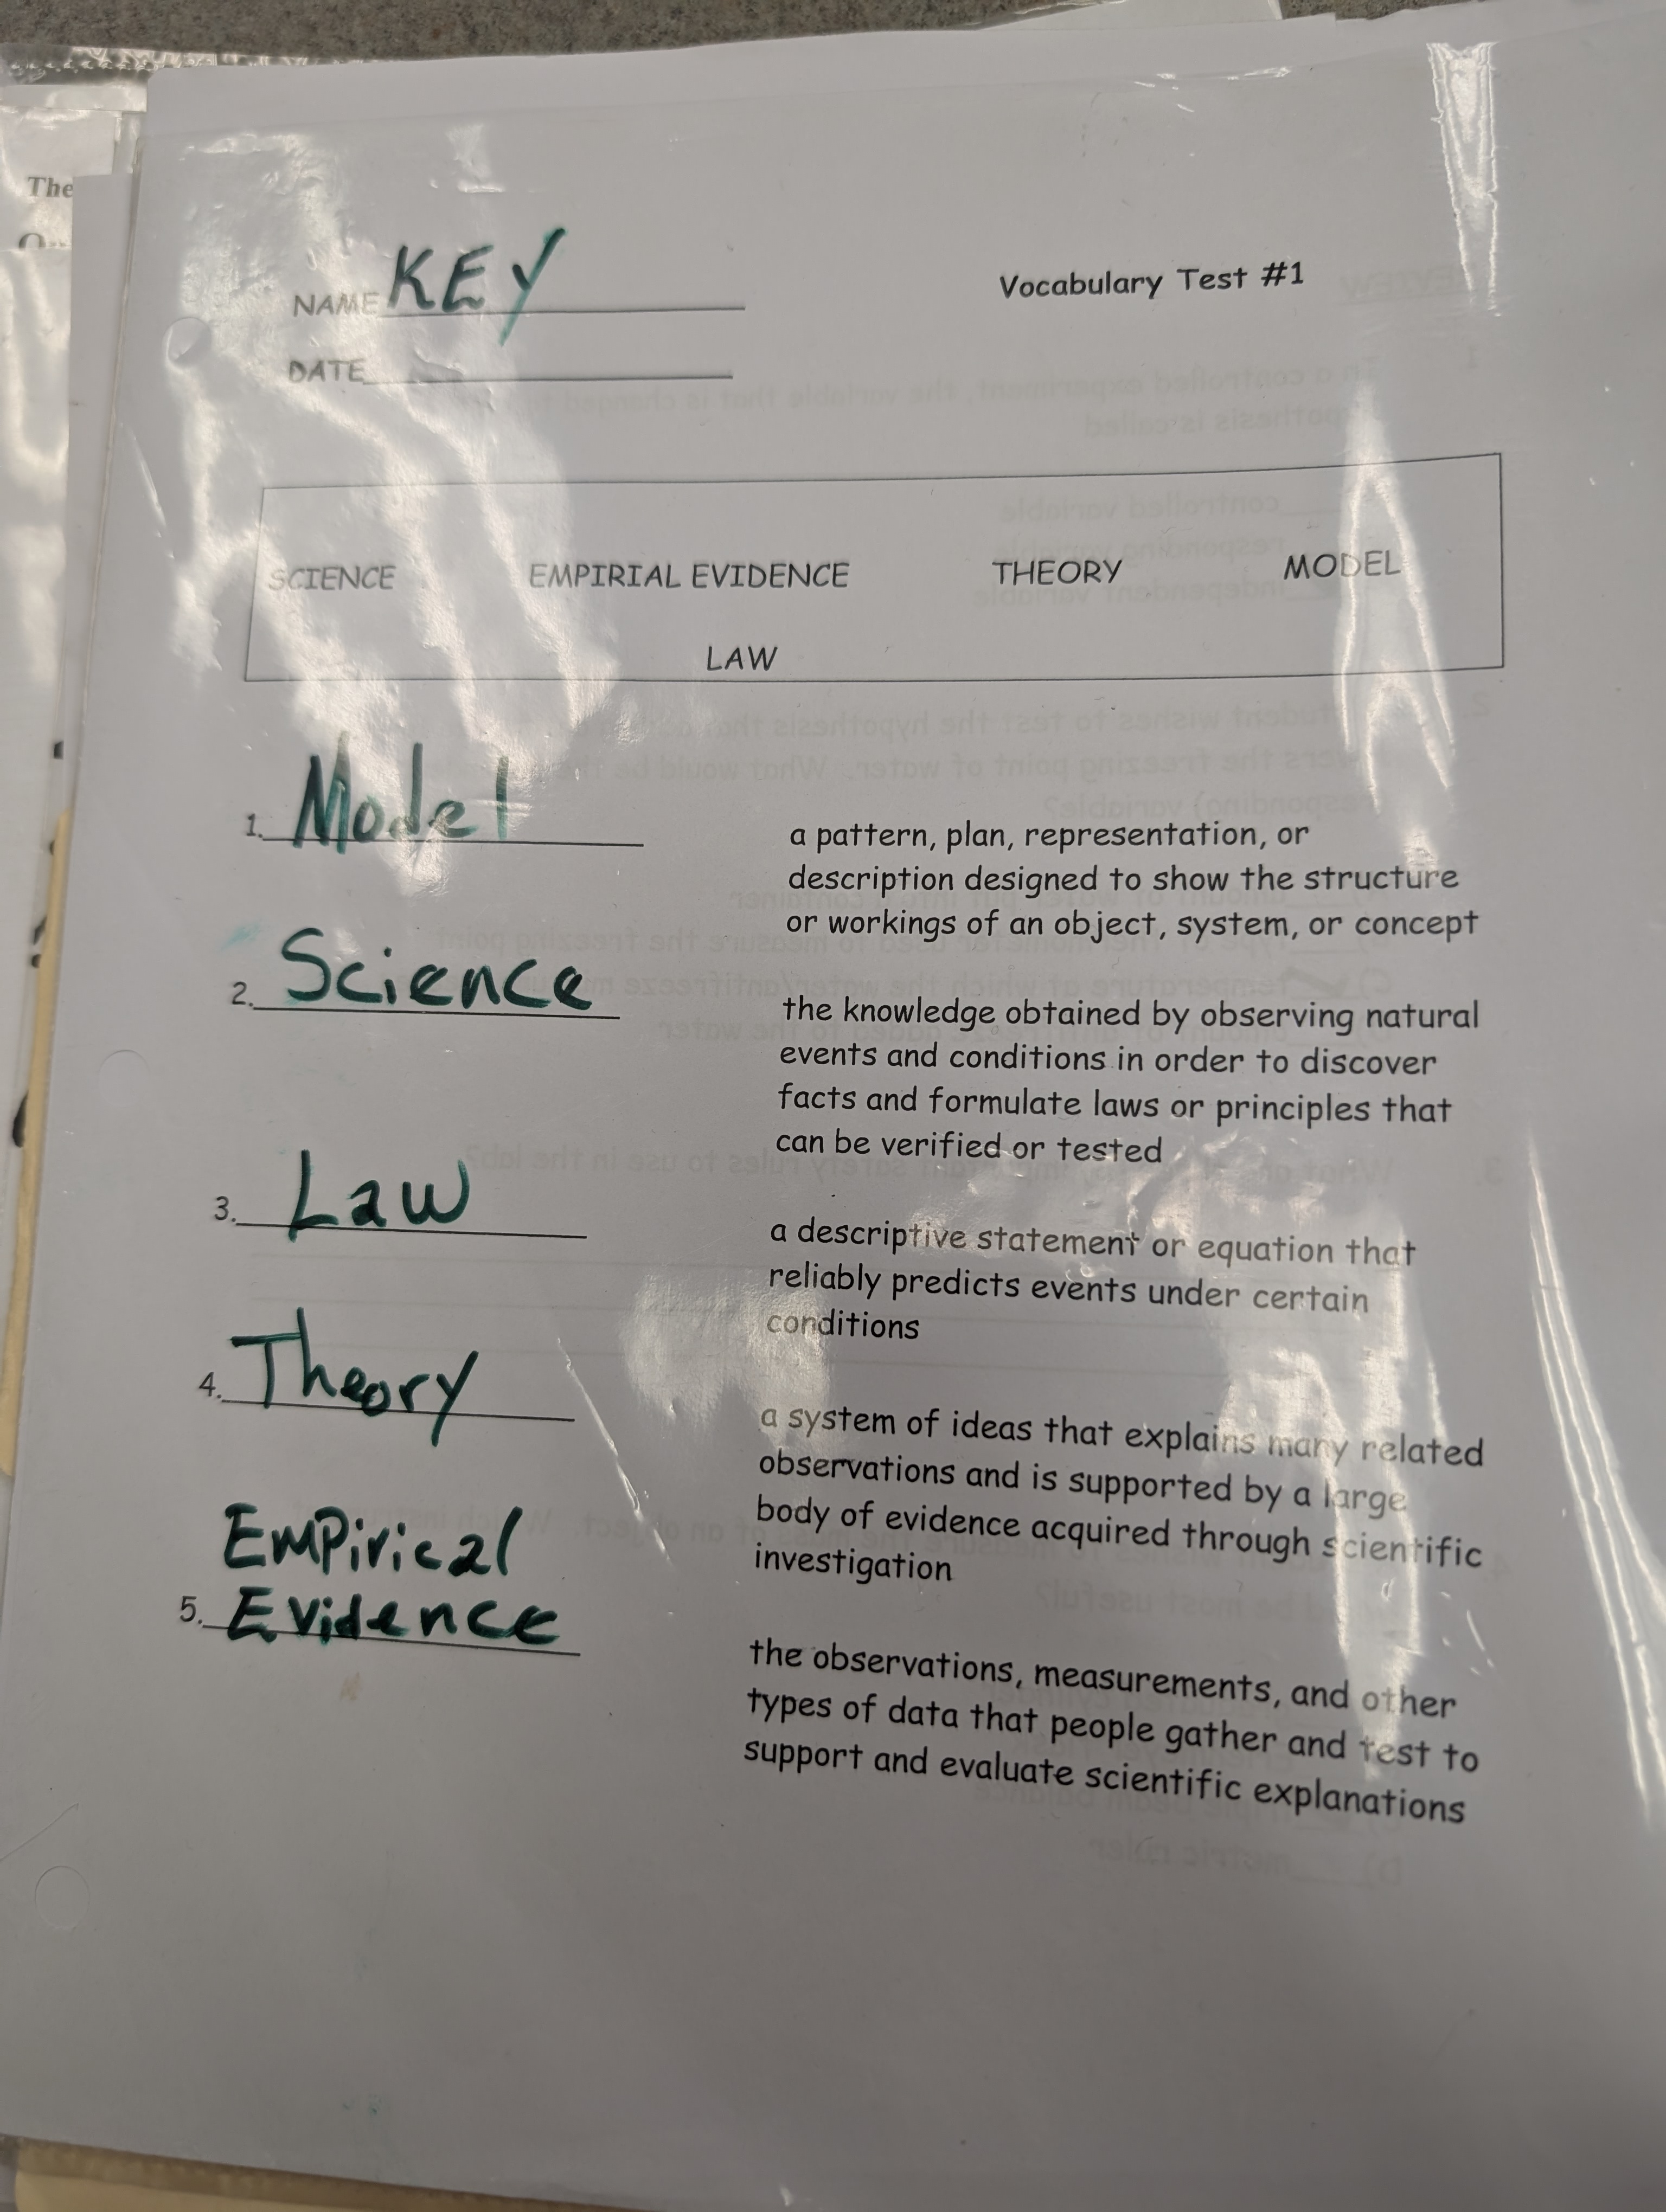 The
NAME KEY
Vocabulary Test #1
DATE
SCIENCE EMPIRIAL EVIDENCE THEORY MODEL
LAW
1. Model
a pattern, plan, representation, or
description designed to show the structure
or workings of an object, system, or concept
2. Science
the knowledge obtained by observing natural
events and conditions in order to discover
facts and formulate laws or principles that
can be verified or tested
3. Law
a descriptive statement or equation that
reliably predicts events under certain
conditions
4. Theory
a system of ideas that explains many related
observations and is supported by a large
body of evidence acquired through scientific
investigation
Empirical
5. Evidence
the observations, measurements, and other
types of data that people gather and test to
support and evaluate scientific explanations